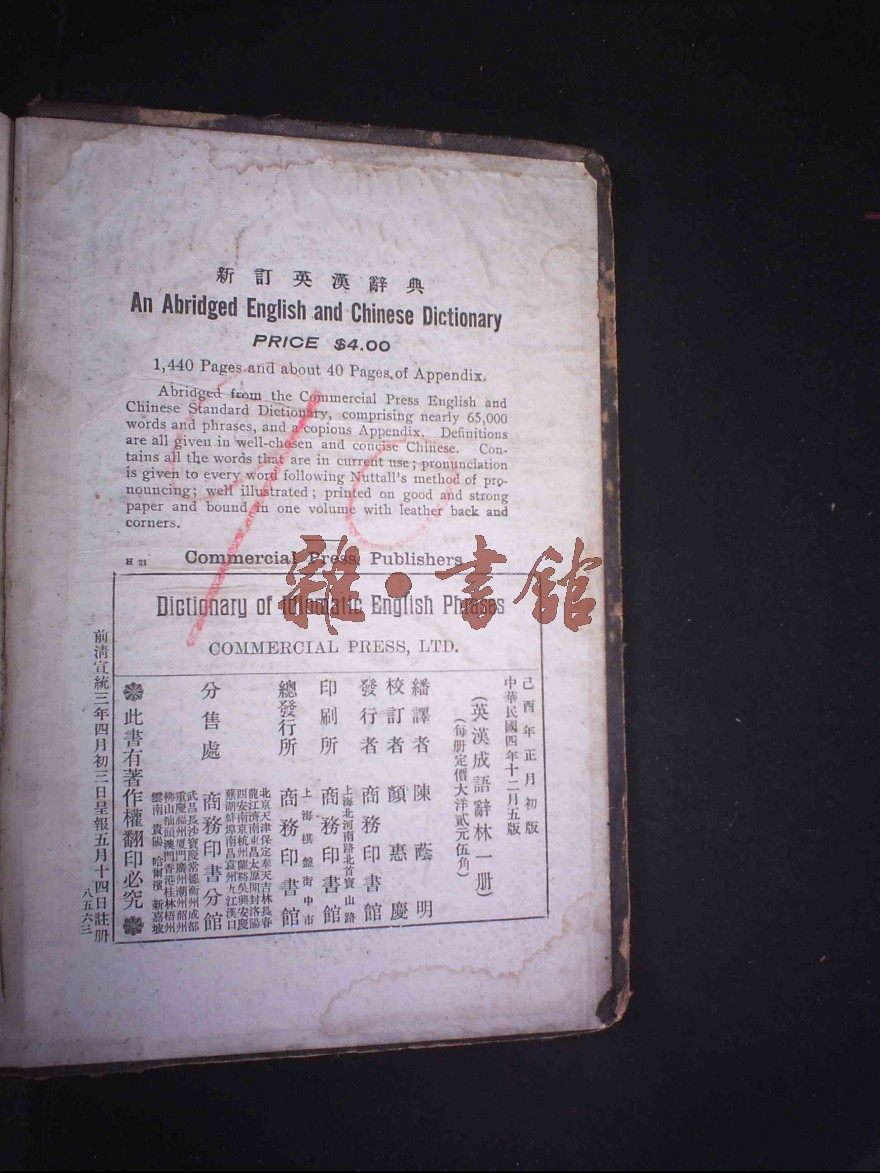 新訂英漢辭典
An Abridged English and Chinese Dictionary
PRICE $4.00
1,440 Pages and about 40 Pages of Appendix.
Abridged from the Commercial Press English and
Chinese Standard Dictionary, comprising nearly 65,000
words and phrases, and a copious Appendix. Definitions
are all given in well-chosen and concise Chinese. Con-
tains all the words that are in current use; pronunciation
is given to every word following Nuttall's method of pro-
nouncing; well illustrated; printed on good and strong
paper and bound in one volume with leather back and
corners.
H 21
Commercial Press, Publishers
雜·書館
Dictionary of Idiomatic English Phrases
COMMERCIAL PRESS, LTD.
己酉年正月初版
中華民國四年十二月五版
(英漢成語辭林一册)
(每册定價大洋貳元伍角)
繙譯者 陳蔭明
校訂者 顏惠慶
發行者 商務印書館
上海北河南路北首寶山路
印刷所 商務印書館
上海棋盤街中市
總發行所 商務印書館
北京天津保定奉天吉林長春
龍江濟南東昌太原開封洛陽
西安南京杭州蘭谿吳興安慶
蕪湖蚌埠南昌袁州九江漢口
分售處 商務印書分館
武昌長沙寶慶常德衡州成都
重慶福州厦門廣州潮州韶州
佛山汕頭澳門香港桂林梧州
雲南貴陽哈爾濱新嘉坡
此書有著作權翻印必究
前清宣統三年四月初三日呈報五月十四日註册
八五六三